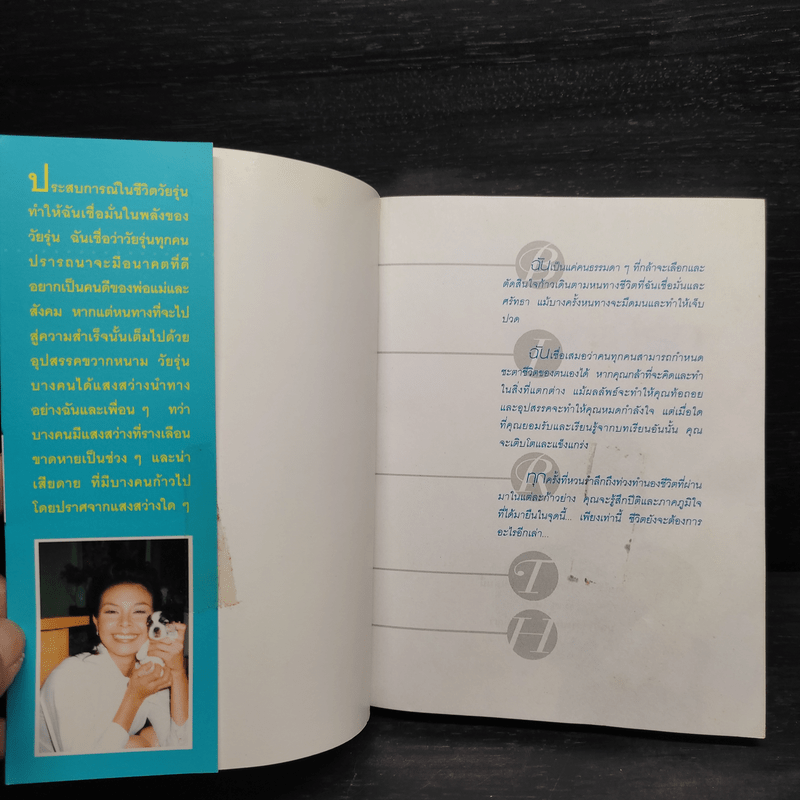 ประสบการณ์ในชีวิตวัยรุ่น
ทำให้ฉันเชื่อมั่นในพลังของ
วัยรุ่น ฉันเชื่อว่าวัยรุ่นทุกคน
ปรารถนาจะมีอนาคตที่ดี
อยากเป็นคนดีของพ่อแม่และ
สังคม หากแต่หนทางที่จะไป
สู่ความสำเร็จนั้นเต็มไปด้วย
อุปสรรคขวากหนาม วัยรุ่น
บางคนได้แสงสว่างนำทาง
อย่างฉันและเพื่อน ๆ ทว่า
บางคนมีแสงสว่างที่รางเลือน
ขาดหายเป็นช่วง ๆ และน่า
เสียดาย ที่มีบางคนก้าวไป
โดยปราศจากแสงสว่างใด ๆ
B
ฉันเป็นแค่คนธรรมดา ๆ ที่กล้าจะเลือกและ
ตัดสินใจก้าวเดินตามหนทางชีวิตที่ฉันเชื่อมั่นและ
ศรัทธา แม้บางครั้งหนทางจะมืดมนและทำให้เจ็บ
ปวด
I
ฉันเชื่อเสมอว่าคนทุกคนสามารถกำหนด
ชะตาชีวิตของตนเองได้ หากคุณกล้าที่จะคิดและทำ
ในสิ่งที่แตกต่าง แม้ผลลัพธ์จะทำให้คุณท้อถอย
และอุปสรรคจะทำให้คุณหมดกำลังใจ แต่เมื่อใด
ที่คุณยอมรับและเรียนรู้จากบทเรียนอันนั้น คุณ
จะเติบโตและแข็งแกร่ง
R
ทุกครั้งที่หวนรำลึกถึงท่วงทำนองชีวิตที่ผ่าน
มาในแต่ละก้าวย่าง คุณจะรู้สึกปีติและภาคภูมิใจ
ที่ได้มายืนในจุดนี้... เพียงเท่านี้ ชีวิตยังจะต้องการ
อะไรอีกเล่า...
T
H